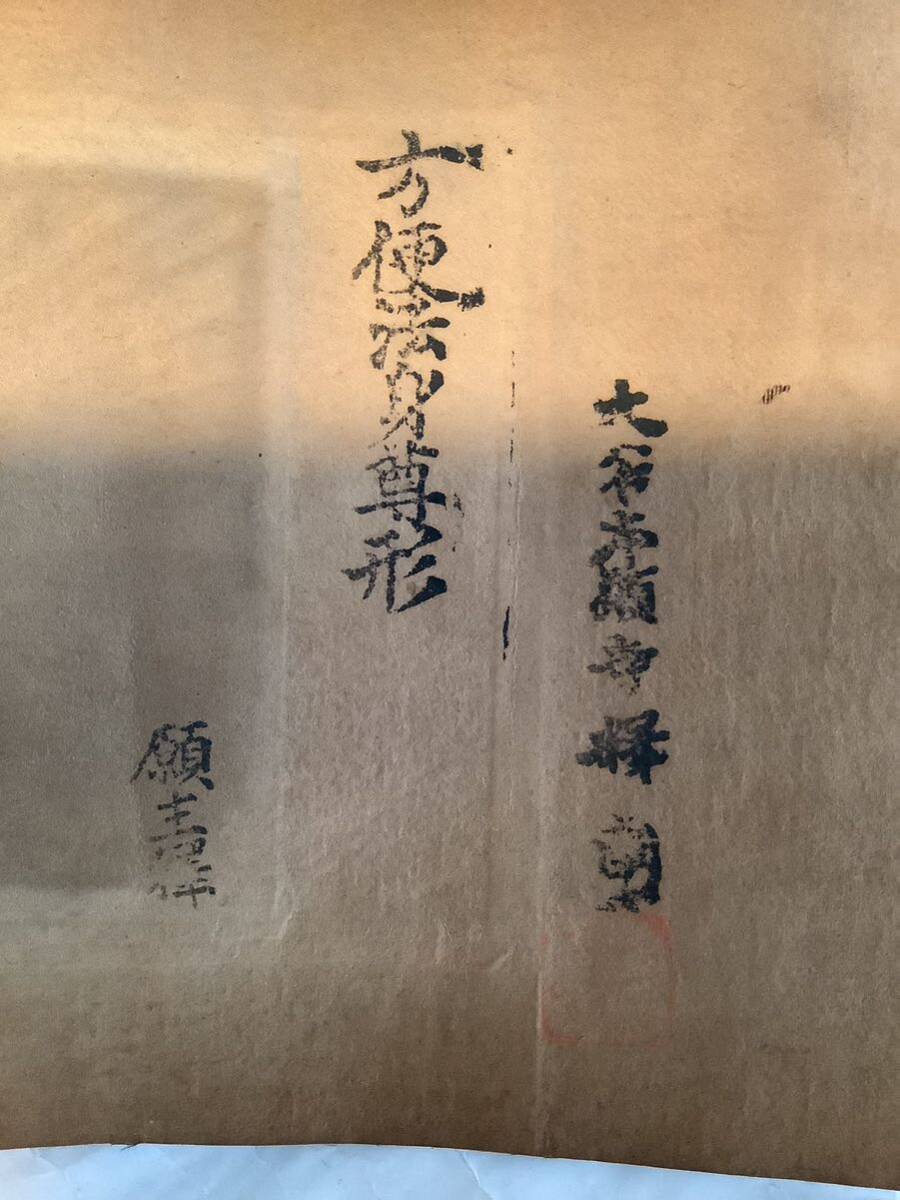 大谷本願寺釋
方便法身尊形
願主